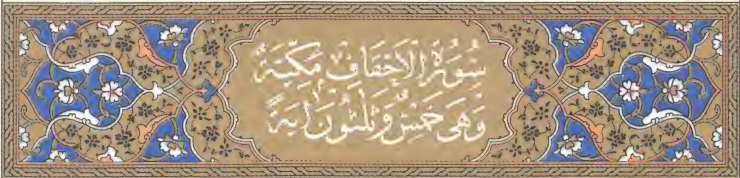 سُورَةُ الْاَحْقَافِ مَكِّيَّةٌ
وَهِيَ خَمْسٌ وَثَلٰثُونَ اٰيَةً